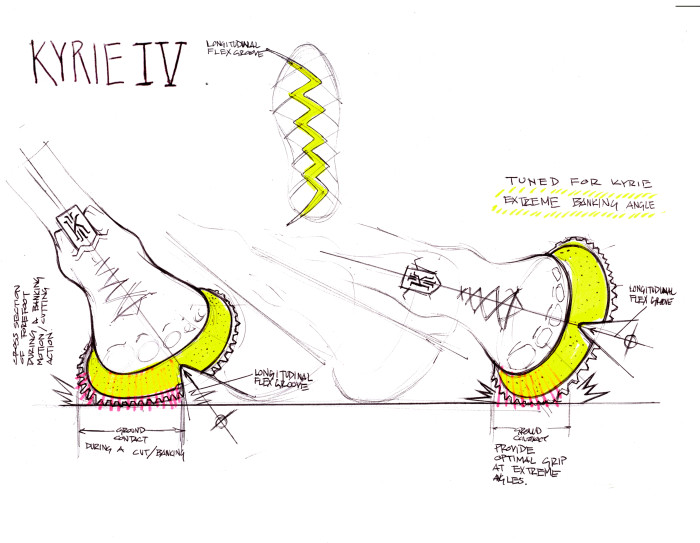 KYRIE IV
LONGITUDINAL
FLEX GROOVE
TUNED FOR KYRIE
EXTREME BANKING ANGLE
CROSS SECTION
OF FOREFOOT
DURING A BANKING
MOTION/CUTTING
ACTION
LONGITUDINAL
FLEX GROOVE
GROUND
CONTACT
DURING A CUT/BANKING
LONGITUDINAL
FLEX GROOVE
GROUND
CONTACT
PROVIDE
OPTIMAL GRIP
AT EXTREME
ANGLES.